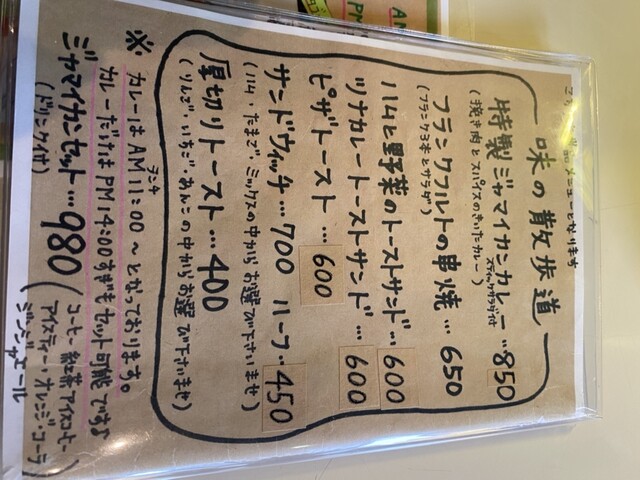 メニューとなります
味の散歩道
特製ジャマイカンカレー…850
スティックサラダ付
(挽き肉とスパイスのきいたカレー)
フランクフルトの串焼…650
(フランク3本とサラダ)
ハムと野菜のトーストサンド…600
ツナカレートーストサンド…600
ピザトースト…600
サンドウィッチ…700 ハーフ…450
(ハム・たまご・ミックスの中からお選び下さいませ)
厚切りトースト…400
(りんご・いちご・あんこの中からお選び下さいませ)
※ カレーはAM11:00~となっております。
ランチ
カレーだけはPM4:00すぎもセット可能ですよ
ジャマイカンセット…980
(ドリンク付)
(コーヒー 紅茶 アイスコーヒー
アイスティー・オレンジ・コーラ)
ジンジャエール